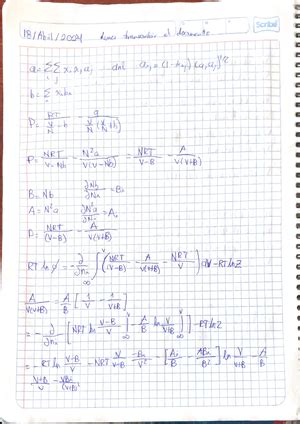 18/Abril/2024
el documento
a = ΣΣ xᵢ xⱼ aᵢⱼ aᵢⱼ = (1 - kᵢⱼ)(aᵢ aⱼ)^1/2
b = Σ xᵢ bᵢ
P = RT/(V/N - b) - a/(V/N (V/N + b))
P = NRT/(V - Nb) - N²a/(V(V - Nb)) = NRT/(V-B) - A/(V(V+B))
B = Nb ∂Nb/∂nᵢ = Bᵢ
A = N²a ∂N²a/∂nᵢ = Aᵢ
P = NRT/(V-B) - A/(V(V+B))
RT ln φ = - ∂/∂nᵢ ∫∞^V (NRT/(V-B) - A/(V(V+B)) - NRT/V) dV - RT ln Z
A/(V(V+B)) = A/B [1/V - 1/(V+B)]
= - ∂/∂nᵢ [NRT ln (V-B)/V |∞^V - A/B ln V/(V+B) |∞^V] - RT ln Z
= - RT ln (V-B)/V - NRT V/(V-B) -Bᵢ/V² - [Aᵢ/B - ABᵢ/B²] ln V/(V+B) - A/B
(V+B)/V -VBᵢ/(V+B)²